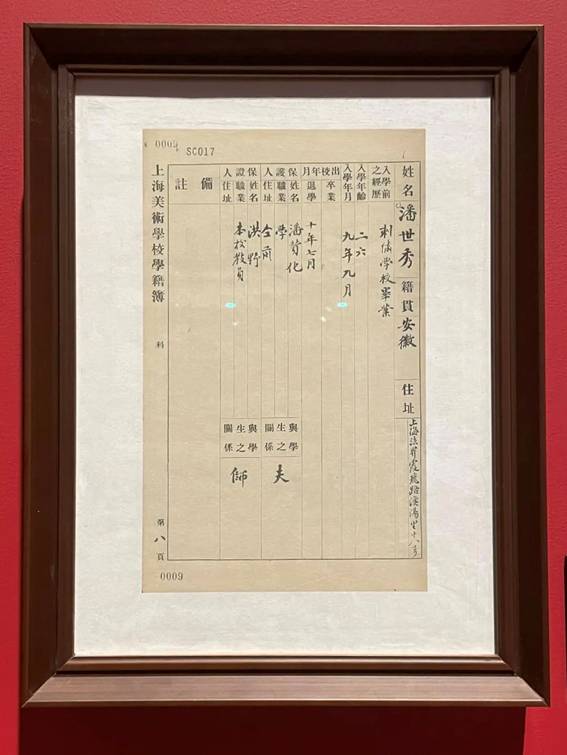 0009
SC017
姓名 潘世秀 籍貫 安徽 住址 上海法界霞飛路漁陽里十八號
入學前之經歷 刺繡學校畢業
入學年齡 二六
入學年月 九年九月
出校卒業
年月退學 十年七月
保護人 姓名 潘贊化
職業 學
住址 仝前
與學生之關係 夫
保證人 姓名 洪野
職業 本校教員
住址
與學生之關係 師
備註
上海美術學校學籍簿
科
第八頁
0009